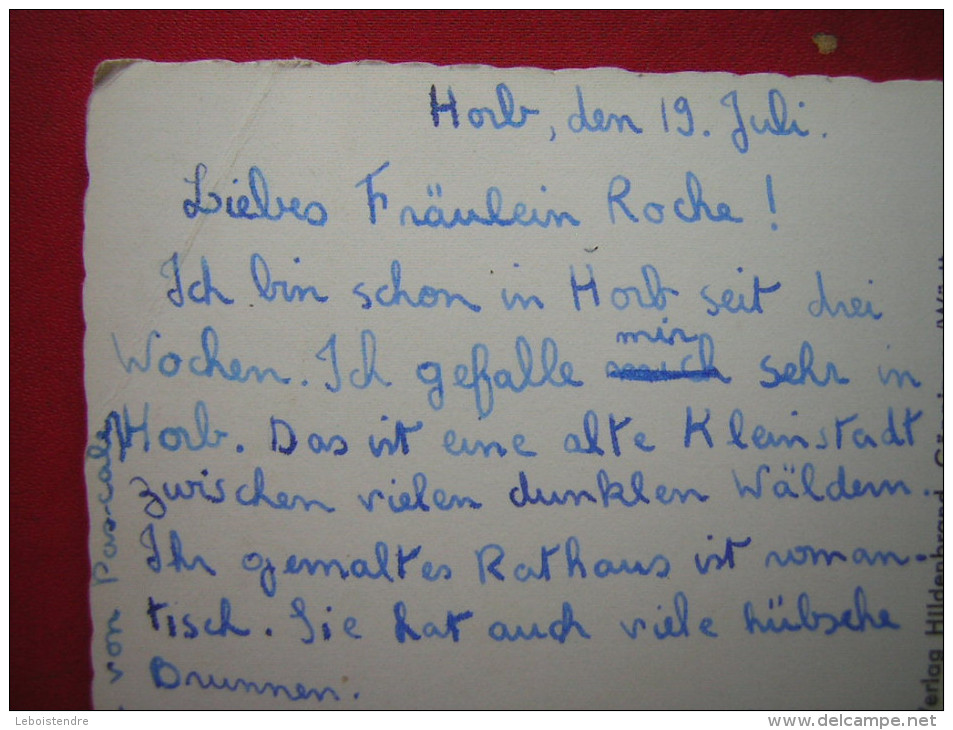 Horb, den 19. Juli.
Liebes Fräulein Roche !
Ich bin schon in Horb seit drei
mir
Wochen. Ich gefalle mich sehr in
Horb. Das ist eine alte Kleinstadt
zwischen vielen dunklen Wäldern.
Ihr gemaltes Rathaus ist roman-
tisch. Sie hat auch viele hübsche
Brunnen.
von Pascale
Verlag Hildenbrand
Leboistendre
www.delcampe.net